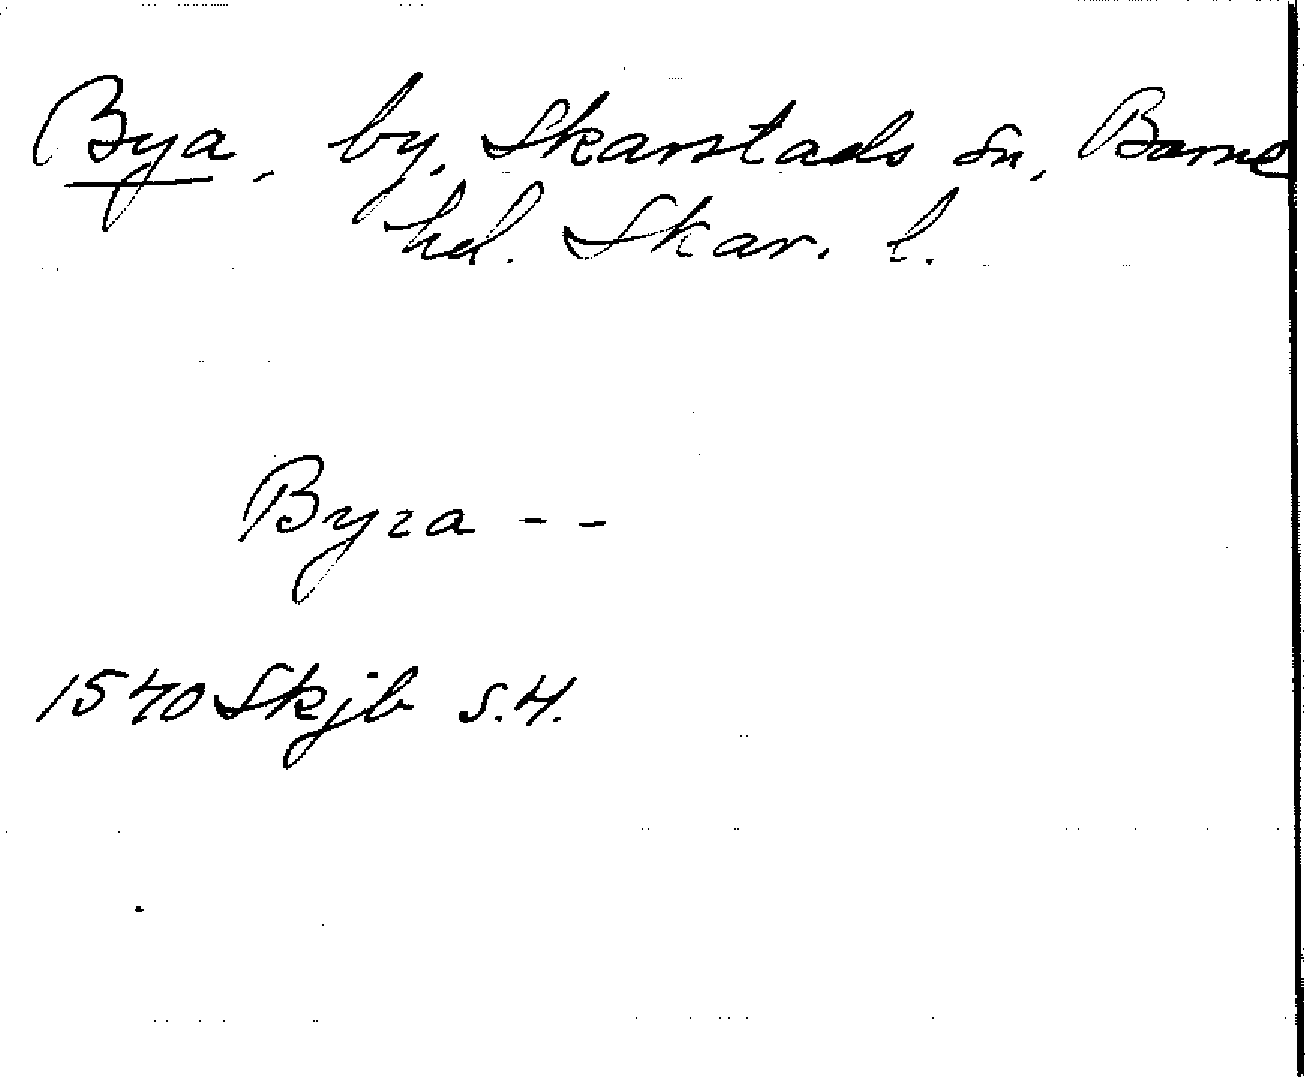 Bya, by, Skarstads sn, Barne
hd. Skar. l.
Byza - -
1540 Skjb s.4.